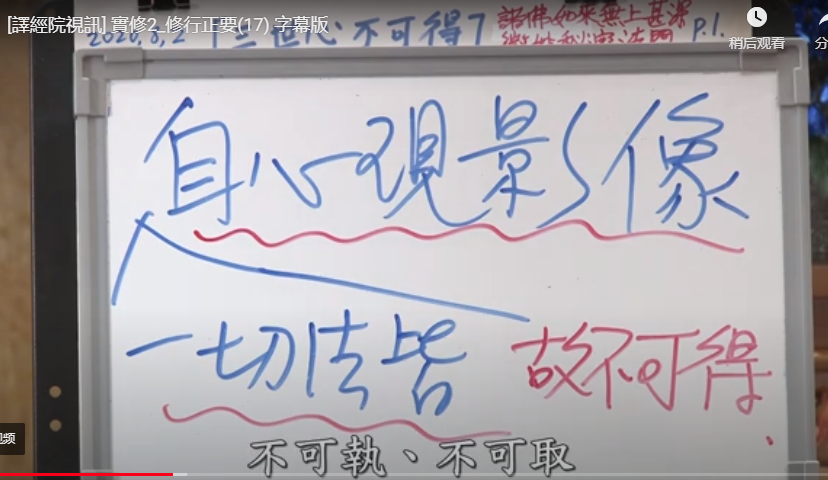 [譯經院視訊] 實修2_修行正要(17)_字幕版
稍后观看
分
2020,8,2 「三世心 不可得」
諸佛如來無上甚深
P.1.
自心現影像
一切法皆
故不可得.
视频
不可執、不可取